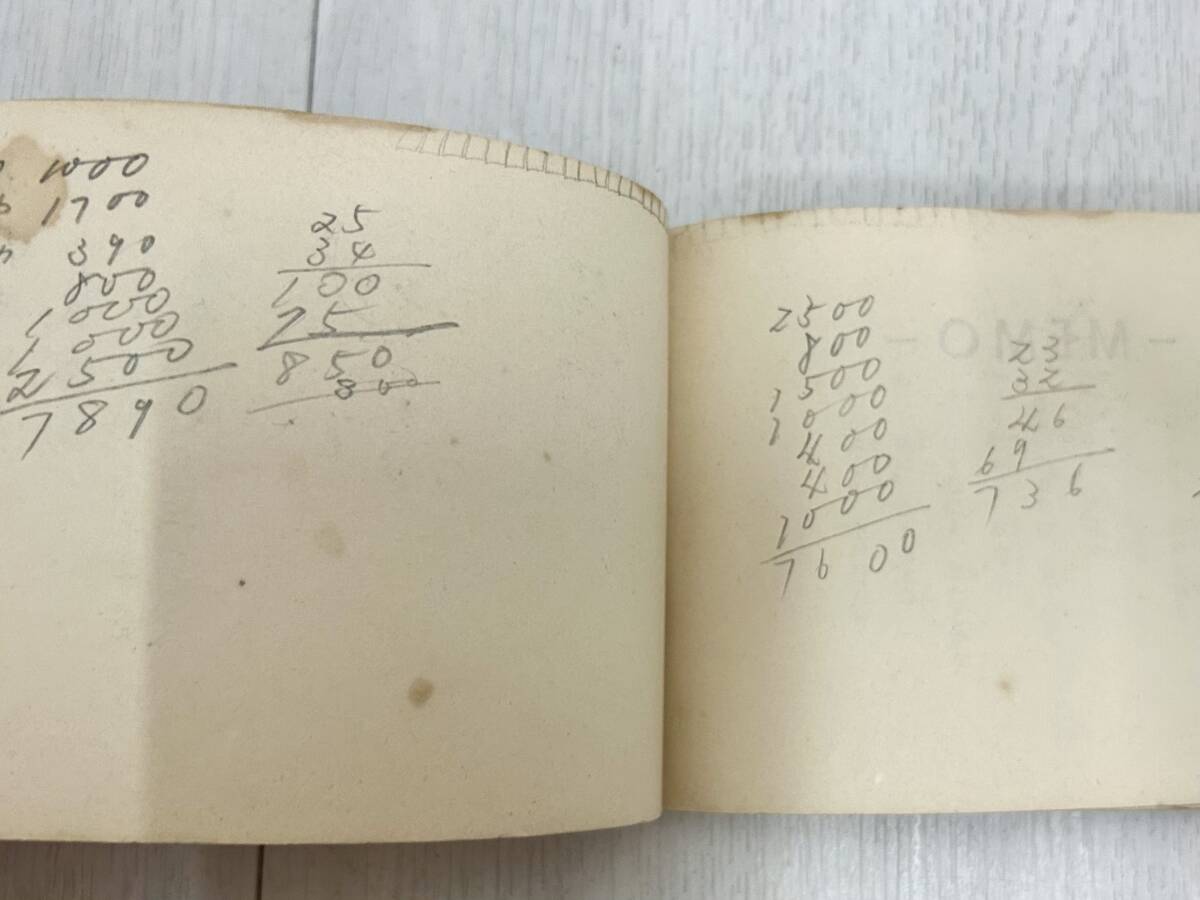 1000
1700
390
800
1000
1000
2500
7890
25
34
100
75
850
800
2500
800
1500
1000
400
400
1000
7600
- MEMO -
23
32
46
69
736